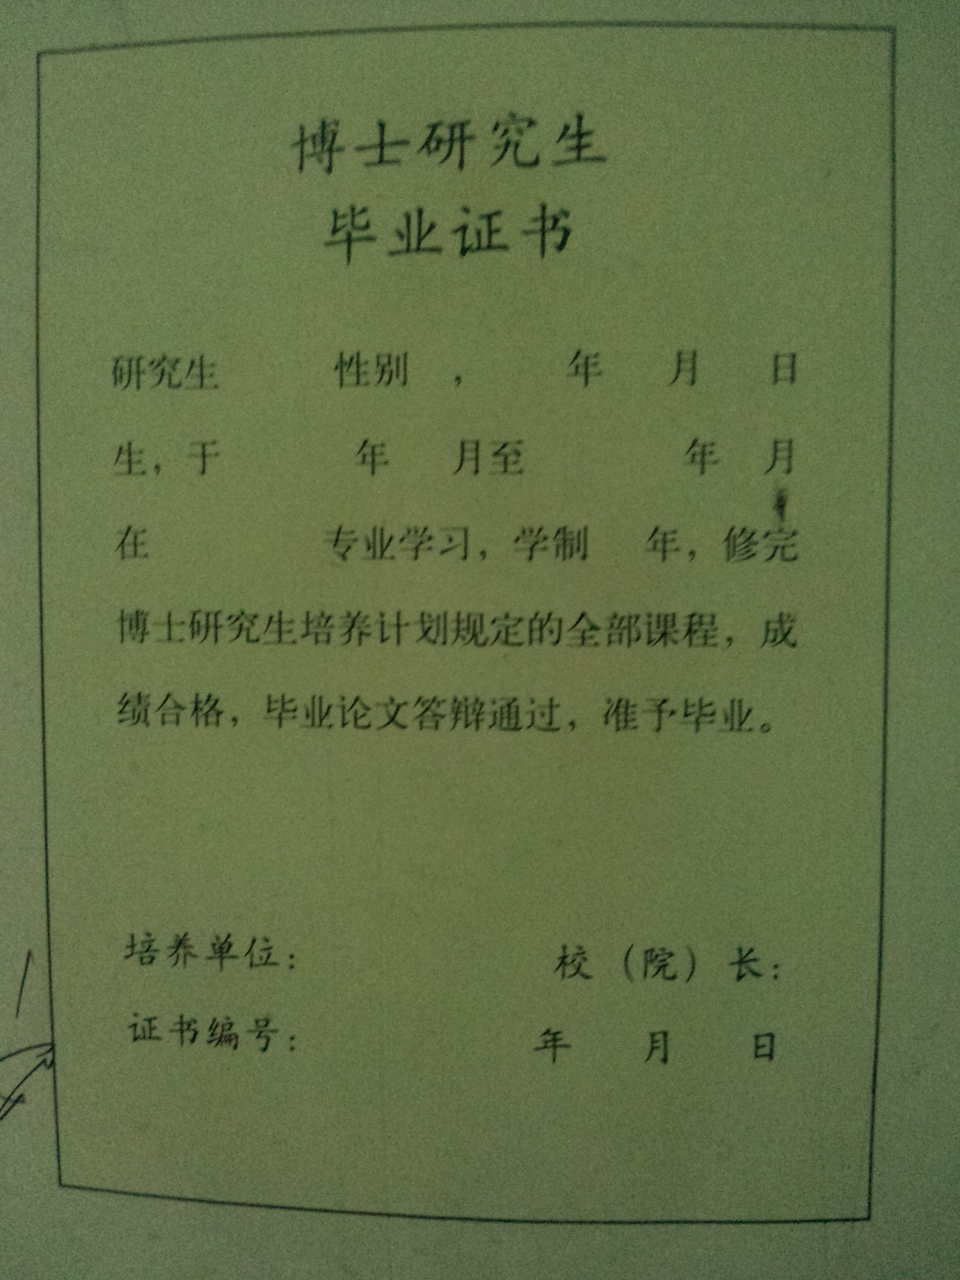 博士研究生
毕业证书
研究生 性别 , 年 月 日
生，于 年 月至 年 月
在 专业学习，学制 年，修完
博士研究生培养计划规定的全部课程，成
绩合格，毕业论文答辩通过，准予毕业。
培养单位： 校（院）长：
证书编号： 年 月 日